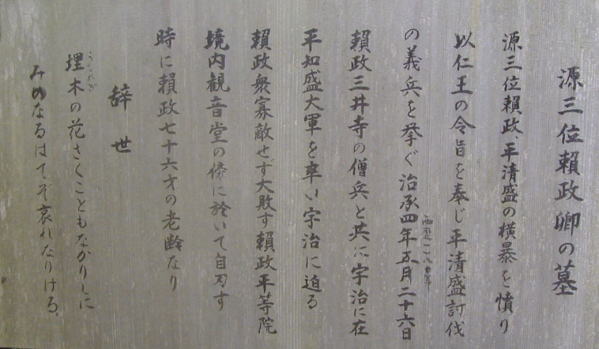 源三位頼政卿の墓
源三位頼政、平清盛の横暴を憤り
以仁王の令旨を奉じ平清盛討伐
の義兵を挙ぐ治承四年五月二十六日
頼政三井寺の僧兵と共に宇治に在
平知盛大軍を率い宇治に迫る
頼政衆寡敵せず大敗す頼政平等院
境内観音堂の傍に於いて自刃す
時に頼政七十六才の老齢なり
辞世
埋木の花さくこともなかりしに
みのなるはてそ哀れなりける